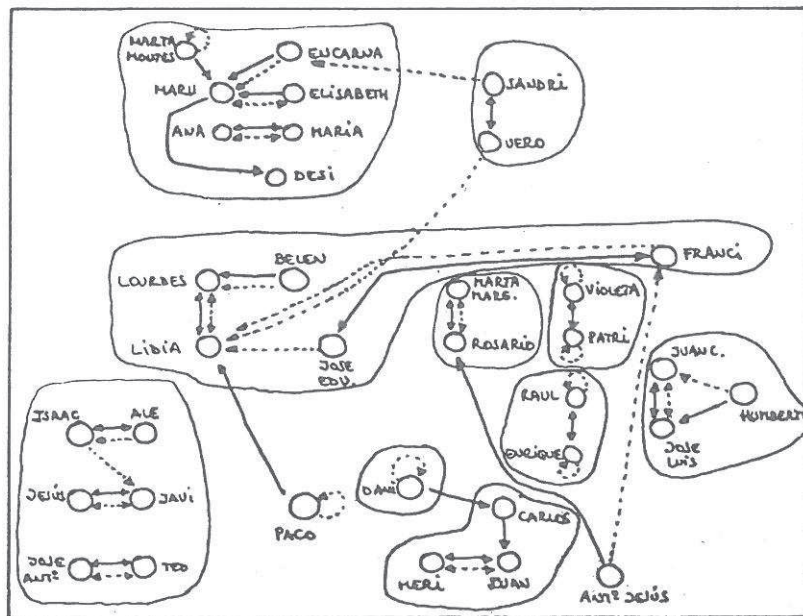 MARTA
MONTES
ENCARNA
MARU
ELISABETH
ANA
MARÍA
DESI
SANDRI
VERO
FRANCI
BELEN
LOURDES
LIDIA
JOSE
EDU.
MARTA
MARG.
ROSARIO
VIOLETA
PATRI
JUAN C.
HUMBERT
JOSE
LUIS
RAUL
ENRIQUE
ISAAC
ALE
JESÚS
JAVI
JOSE
ANTº
TEO
PACO
DANI
CARLOS
MERI
JUAN
ANTº JESÚS